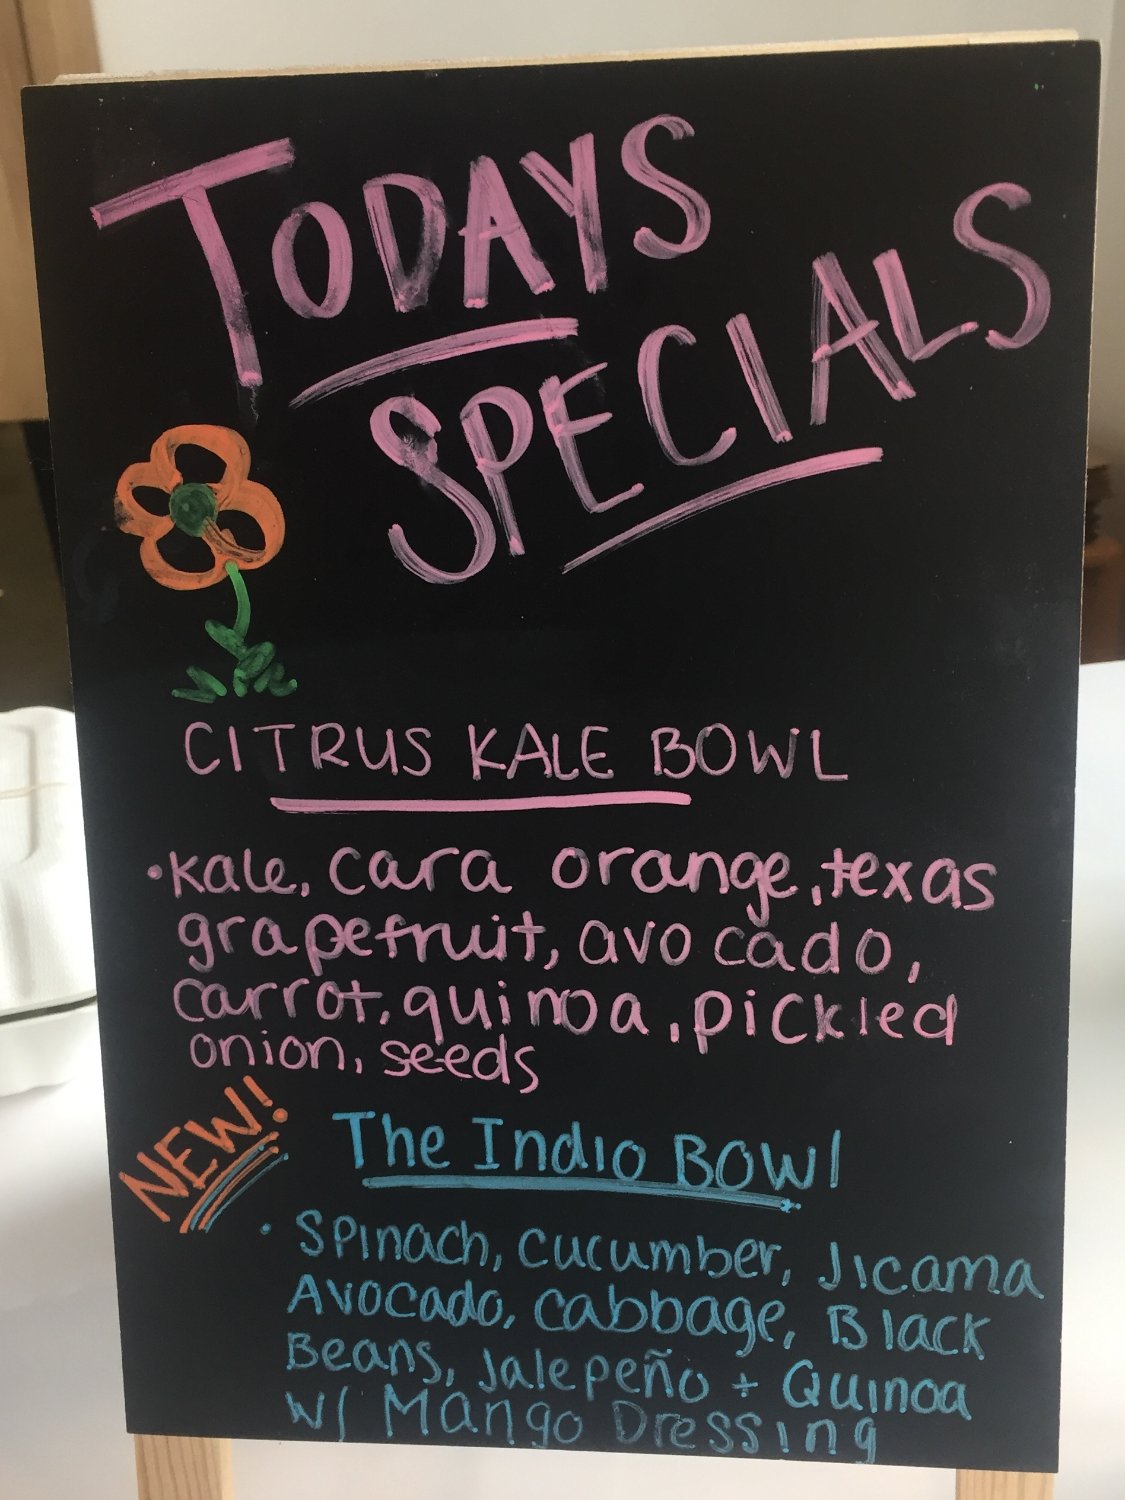 TODAYS
SPECIALS
CITRUS KALE BOWL
•kale, cara orange, texas
grapefruit, avocado,
carrot, quinoa, pickled
onion, seeds
NEW!
The Indio BOWl
• Spinach, cucumber, Jicama
Avocado, cabbage, Black
Beans, Jalepeño + Quinoa
w/ Mango Dressing